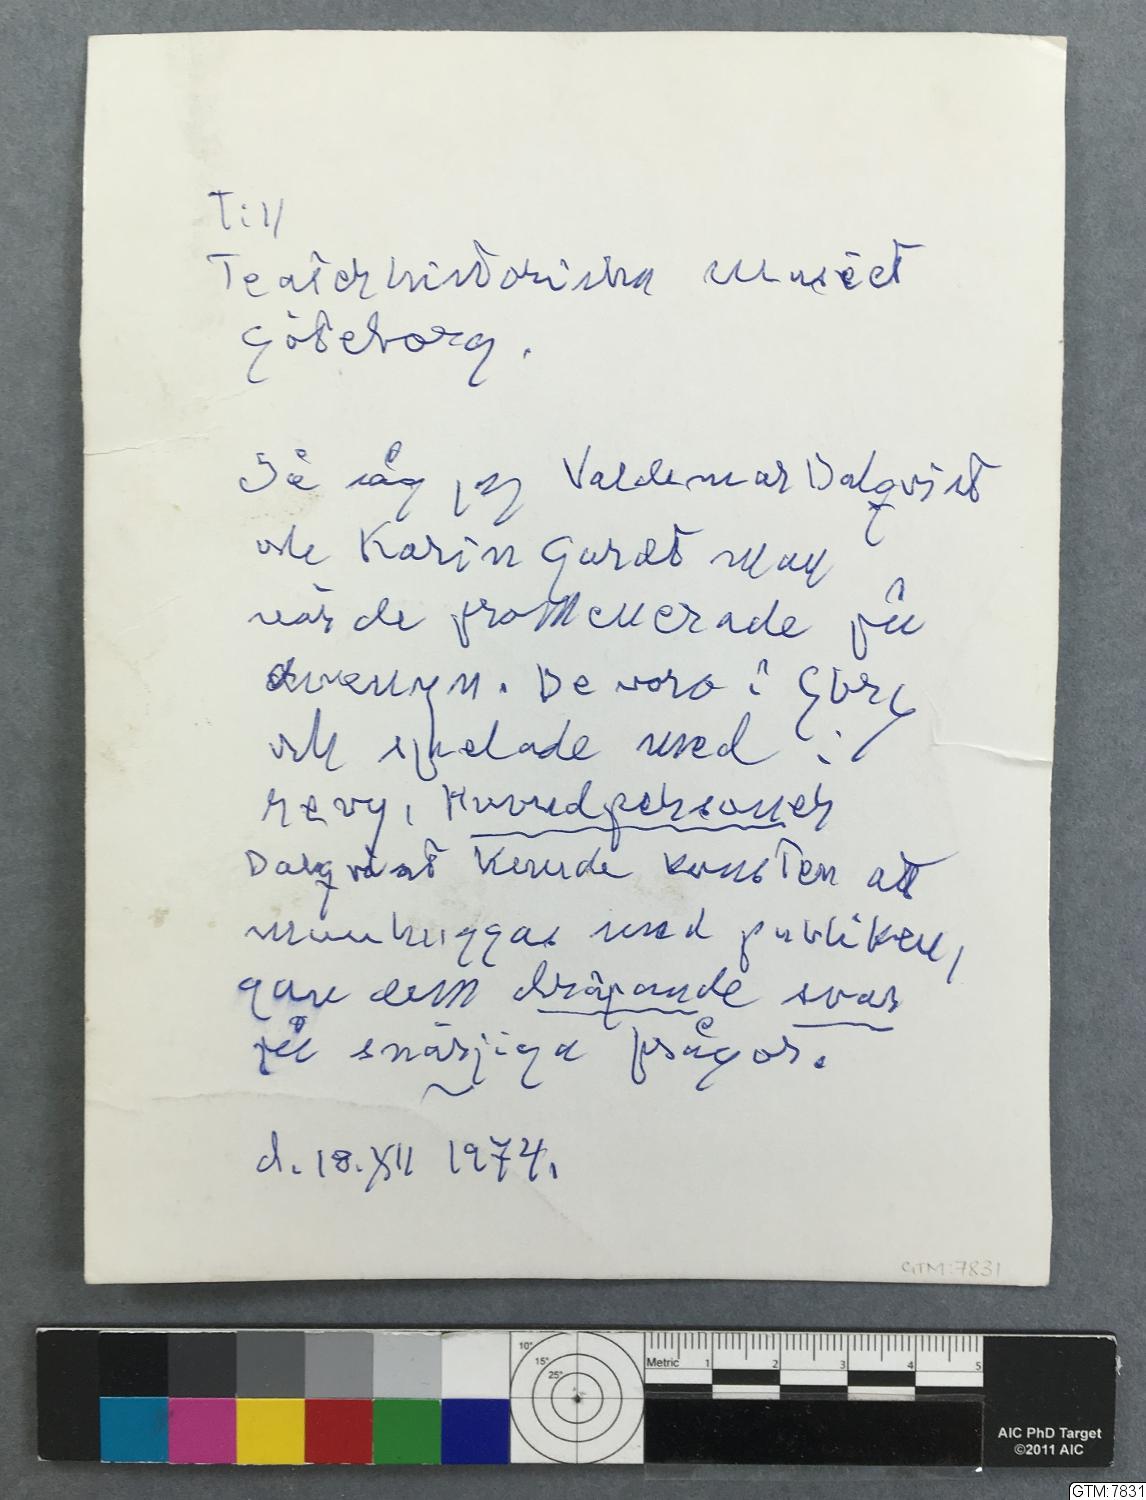 Till
Teaterhistoriska museet
Göteborg.
Så såg jag Valdemar Dalqvist
och Karin Gardt man
när de promenerade på
avenyn. De voro i Gbrg
och spelade med i
revy, Huvudpersonen
Dalqvist kunde konsten att
munhuggas med publiken,
gav dem dräpande svar
på snärjiga frågor.
d. 18. XII 1974.
GTM:7831
10°
15°
25°
Metric 1 2 3 4 5
AIC PhD Target
©2011 AIC
GTM:7831